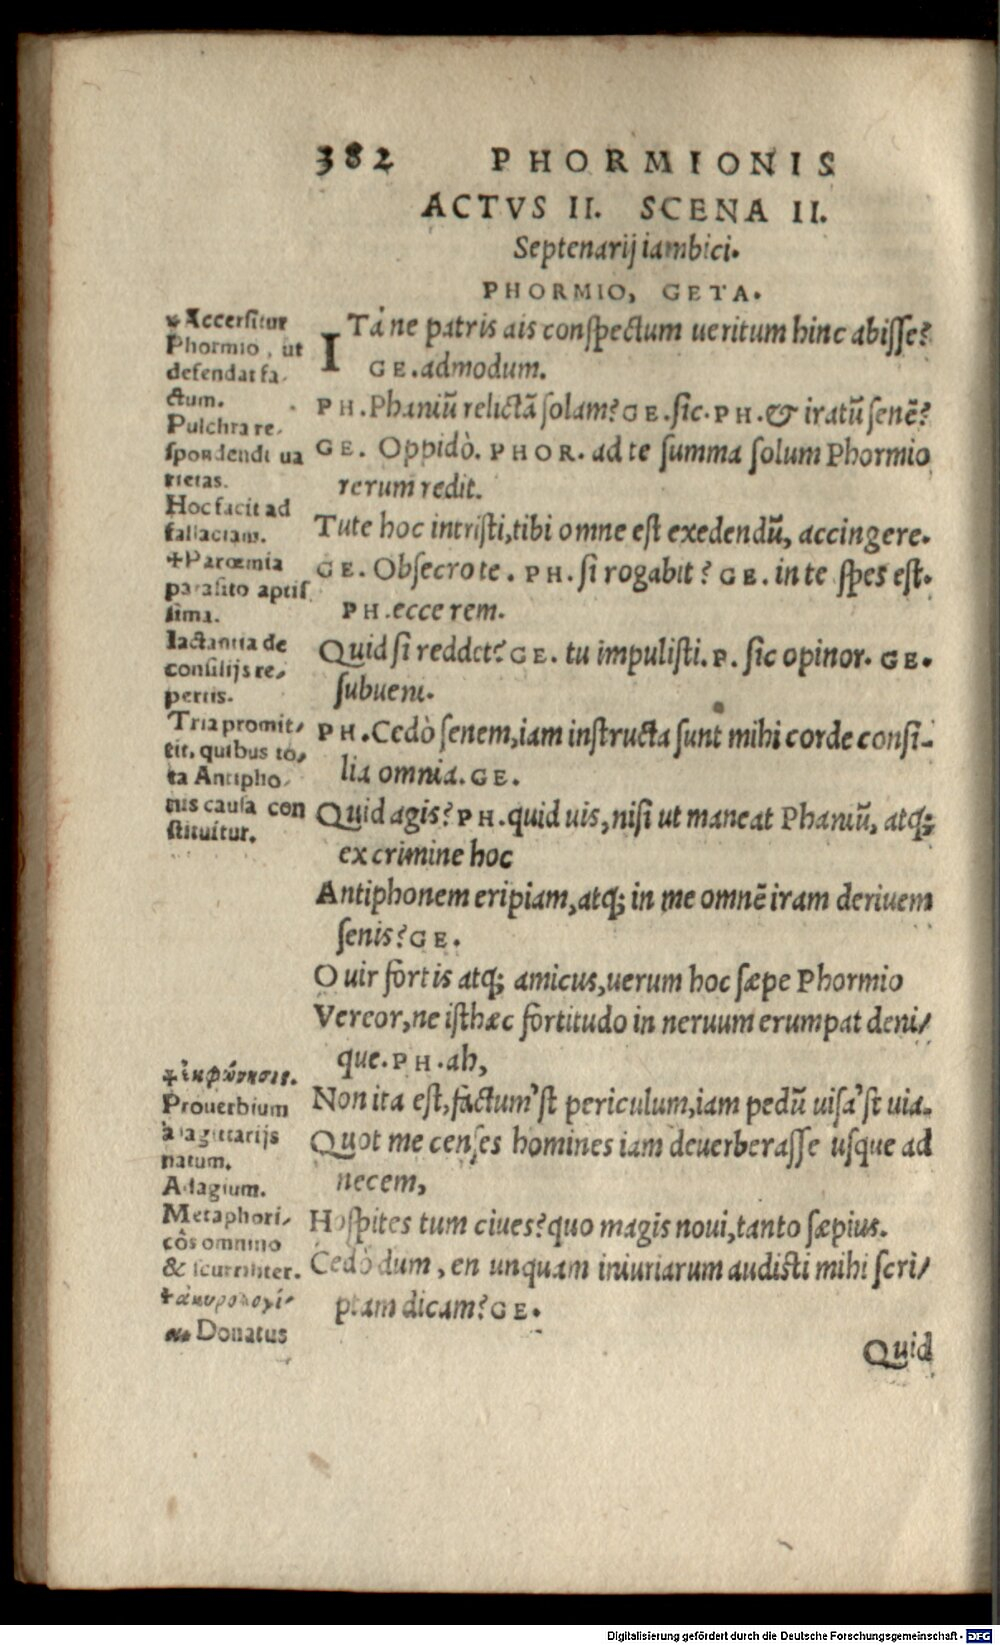 382 PHORMIONIS
ACTVS II. SCENA II.
Septenarij iambici.
PHORMIO, GETA.
ITá ne patris ais conspectum ueritum hinc abisse?
GE. admodum.
PH. Phaniũ relictã solam? GE. sic. PH. & iratũ senẽ?
GE. Oppidò. PHOR. ad te summa solum Phormio
rerum redit.
Tute hoc intristi, tibi omne est exedendũ, accingere.
GE. Obsecro te. PH. si rogabit? GE. in te spes est.
PH. ecce rem.
Quid si reddet? GE. tu impulisti. P. sic opinor. GE.
subueni.
PH. Cedò senem, iam instructa sunt mihi corde consi-
lia omnia. GE.
Quid agis? PH. quid uis, nisi ut maneat Phaniũ, atq;
ex crimine hoc
Antiphonem eripiam, atq; in me omnẽ iram deriuem
senis? GE.
O uir fortis atq; amicus, uerum hoc sæpe Phormio
Vereor, ne isthæc fortitudo in neruum erumpat deni/
que. PH. ah,
Non ita est, factum'st periculum, iam pedũ uisa'st uia.
Quot me censes homines iam deuerberasse usque ad
necem,
Hospites tum ciues? quo magis noui, tanto sæpius.
Cedò dum, en unquam iniuriarum audisti mihi scri/
ptam dicam? GE.
Quid
+Accersitur
Phormio, ut
defendat fa-
ctum.
Pulchra re-
spondendi ua
rietas.
Hoc facit ad
fallaciam.
+Parœmia
parasito aptis
sima.
Iactantia de
consilijs re/
pertis.
Tria promit/
tit, quibus to/
ta Antipho-
nis causa con
stituitur.
Prouerbium
à sagittarijs
natum.
Adagium.
Metaphori/
côs omnino
& scurriliter.
Donatus
Digitalisierung gefördert durch die Deutsche Forschungsgemeinschaft - DFG